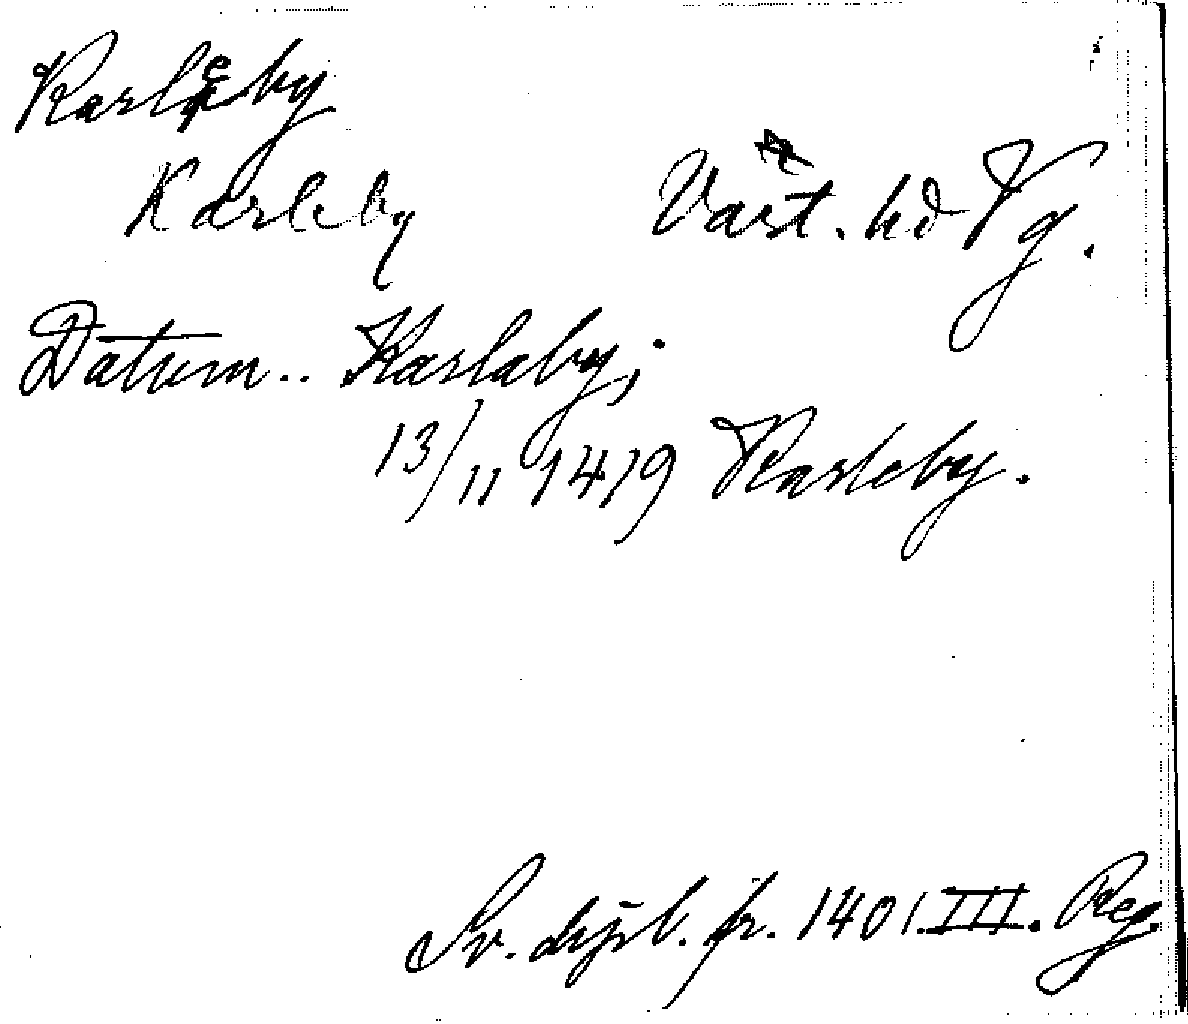 Karleby
Karleby Vart. hd Vg.
Datum.. Karlaby;
13/11 1419 Karleby.
Sv. dipl. fr. 1401.III. Reg.